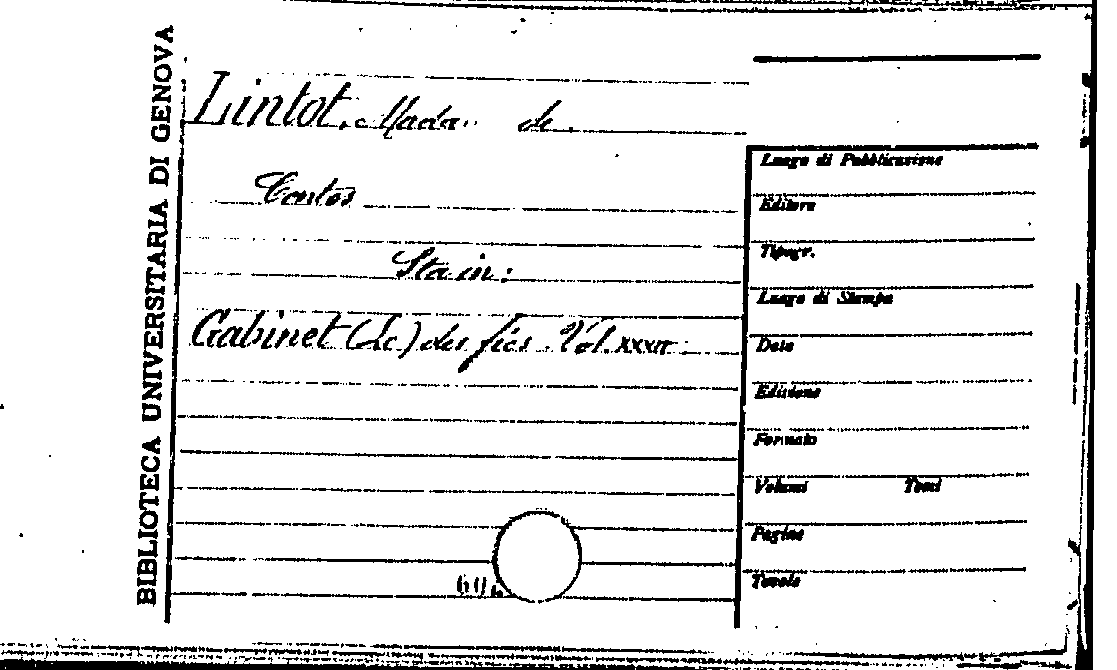 BIBLIOTECA UNIVERSITARIA DI GENOVA
Lintot. Mada.. de.
Contes
Sta in:
Cabinet (Le) des fées. Vol. xxxii
Luogo di Pubblicazione
Editore
Tipogr.
Luogo di Stampa
Data
Edizione
Formato
Volumi Tomi
Pagine
Tavole